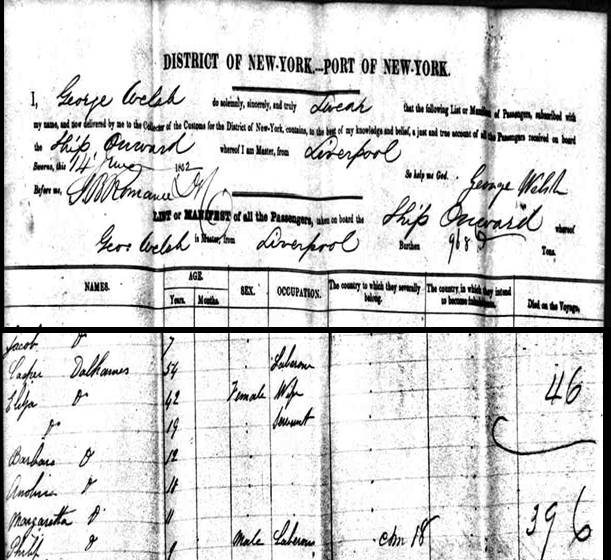 DISTRICT OF NEW-YORK,—PORT OF NEW-YORK.
I, George Welsh do solemnly, sincerely, and truly Swear that the following List or Manifest of Passengers, subscribed with
my name, and now delivered by me to the Collector of the Customs for the District of New-York, contains, to the best of my knowledge and belief, a just and true account of all the Passengers received on board
the Ship Onward whereof I am Master, from Liverpool
So help me God. George Welsh
Sworn, this 14 June 1852
Before me,
LIST or MANIFEST of all the Passengers, taken on board the Ship Onward whereof
Geo Welsh is Master, from Liverpool Burthen 968 Tons.
NAMES. AGE. Years. Months. SEX. OCCUPATION. The country to which they severally belong. The country in which they intend to become inhabitants. Died on the Voyage.
Jacob Do 7
Casper Dalhames 54 Laborer
Eliza Do 42 Female Wife 46
Do 19 Servant
Barbara Do 12
Do
Margaretta Do 11 396
Philip Do 9 Male Laborer